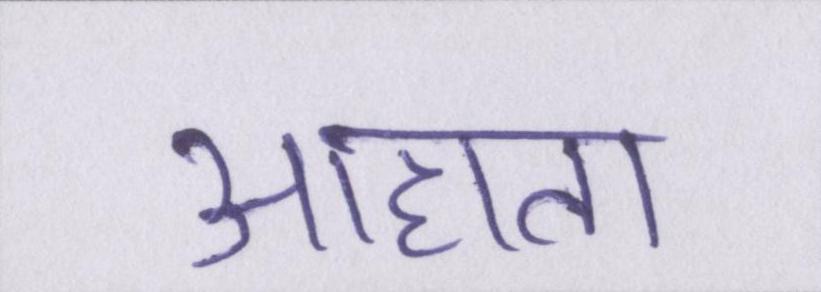 आहाता